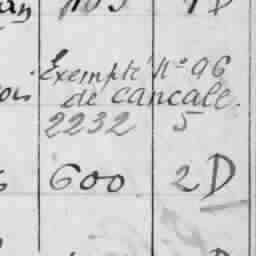 1105 1 D
Exempté N° 96
de Cancale.
2232 5
600 2 D